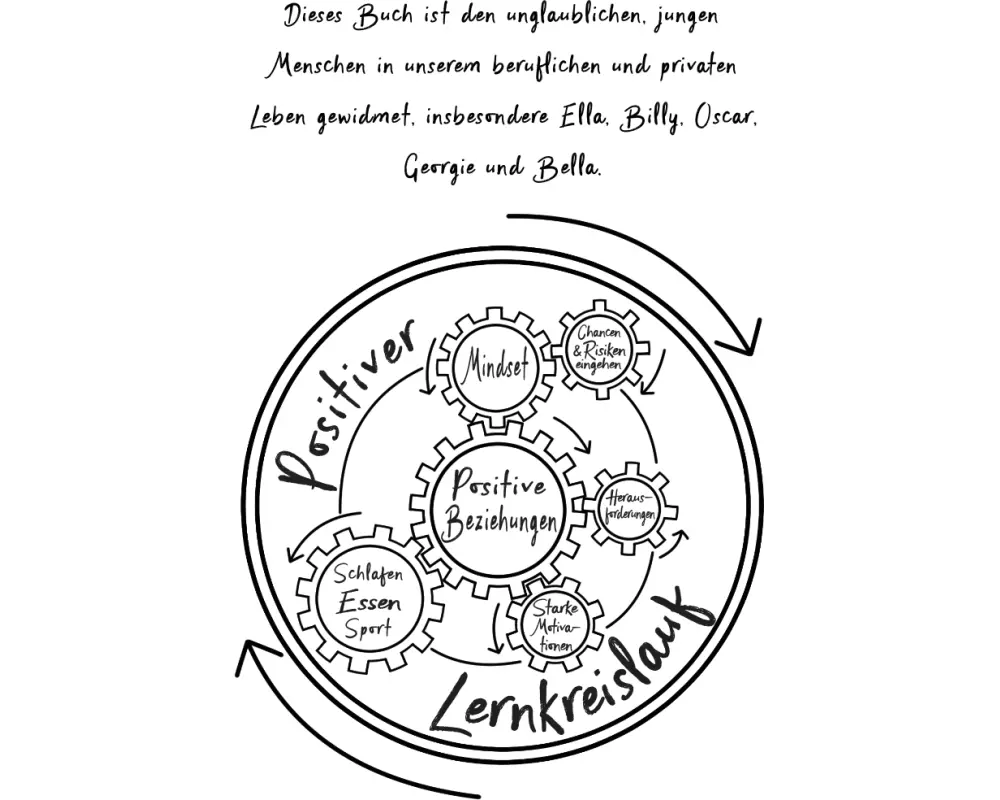 Dieses Buch ist den unglaublichen, jungen
Menschen in unserem beruflichen und privaten
Leben gewidmet, insbesondere Ella, Billy, Oscar,
Georgie und Bella.
Positiver
Mindset
Chancen
& Risiken
eingehen
Positive
Beziehungen
Heraus-
forderungen
Schlafen
Essen
Sport
Starke
Motiva-
tionen
Lernkreislauf